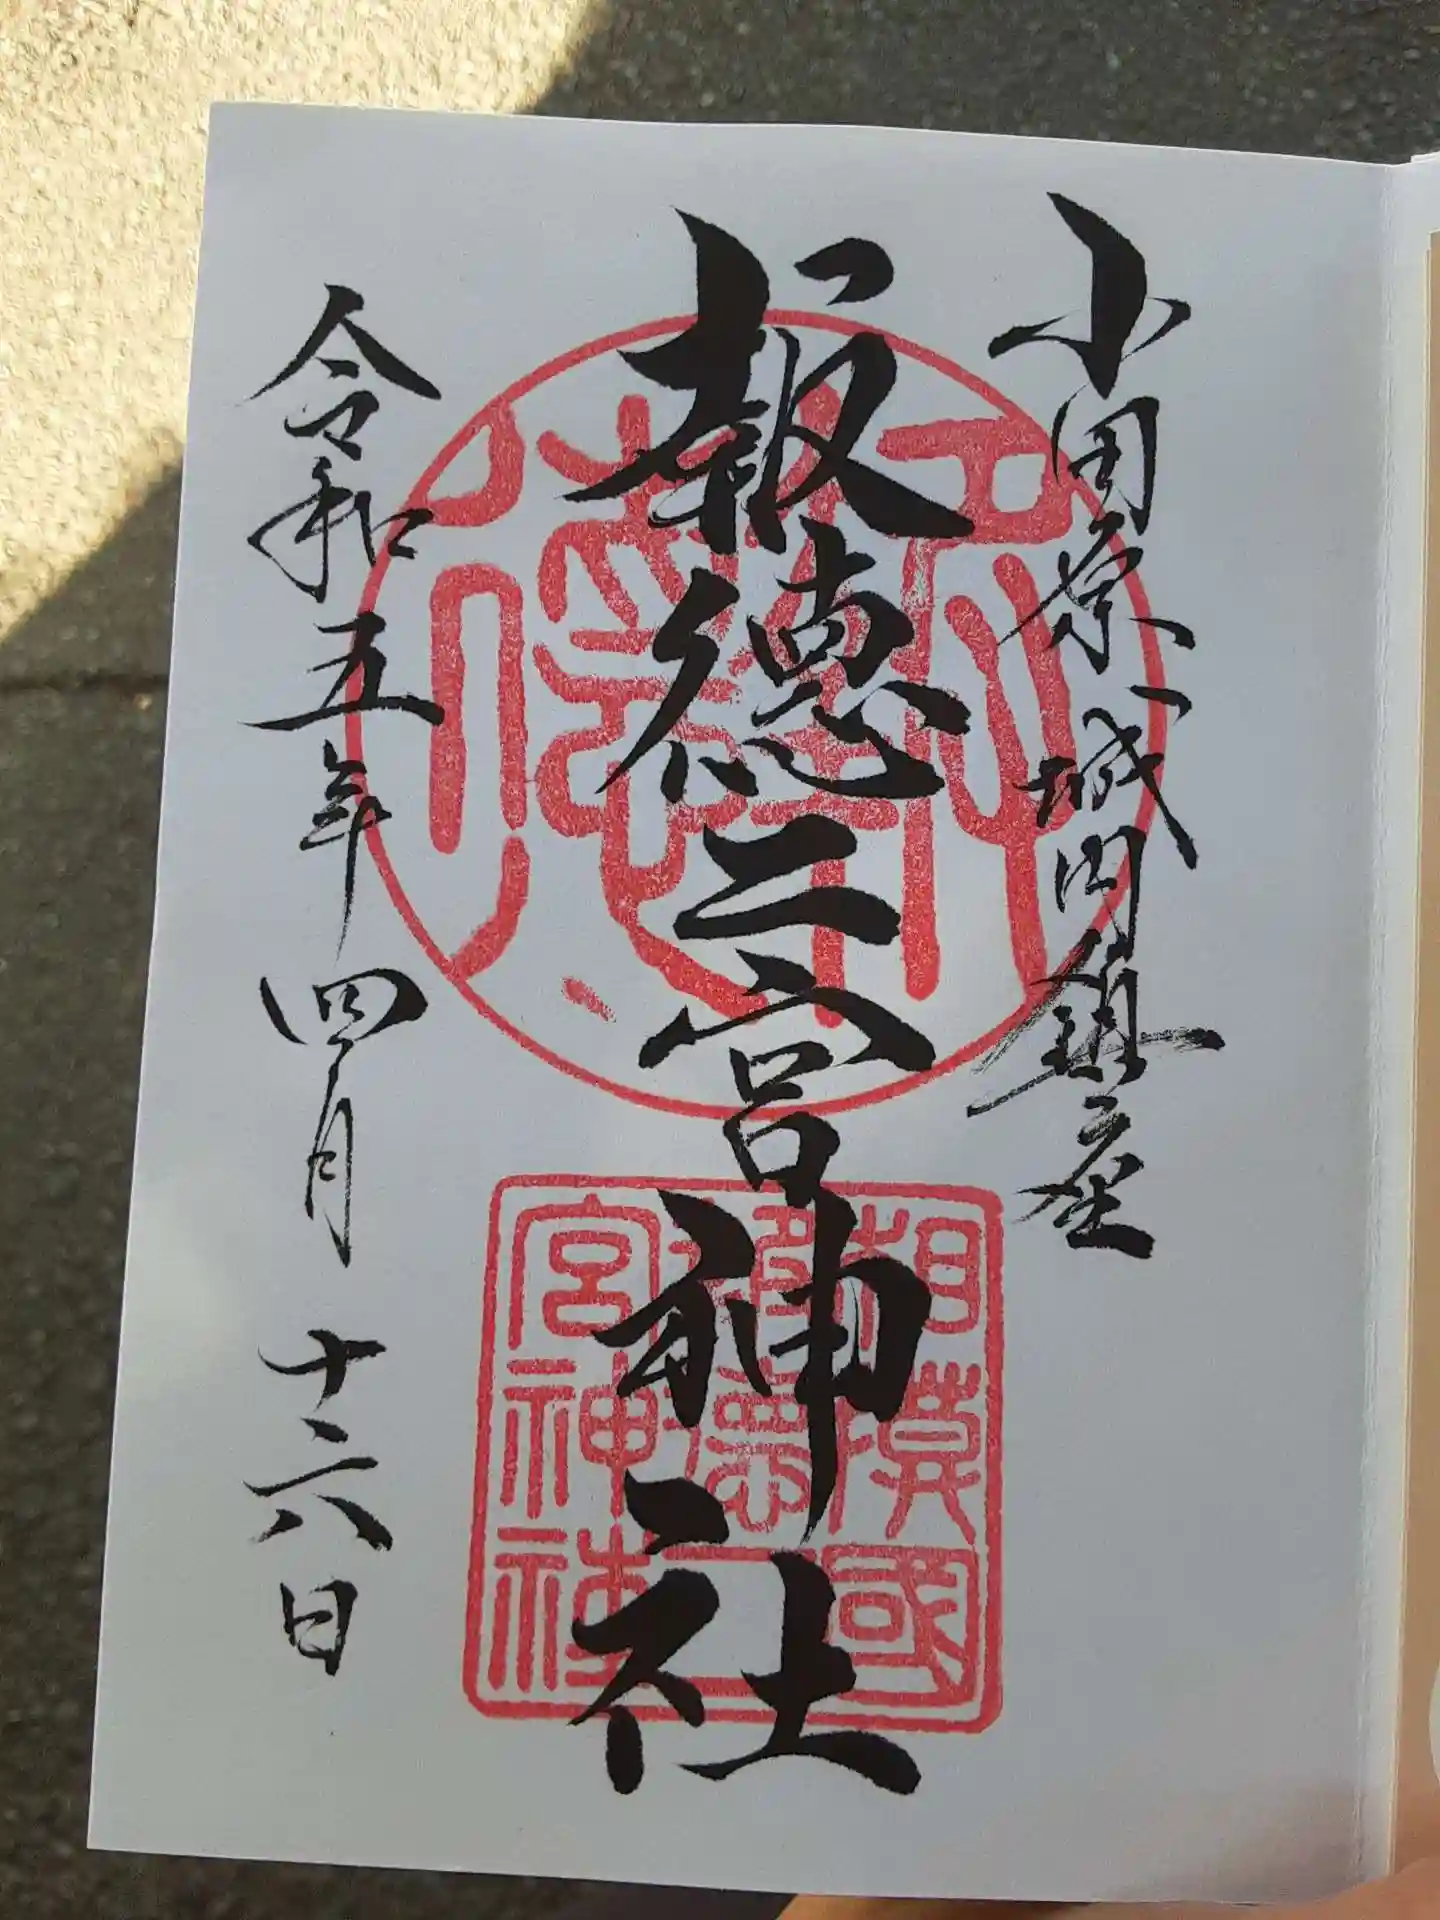 小田原城内鎮座
報徳二宮神社
令和五年四月十六日
相模國
報徳二
宮神社